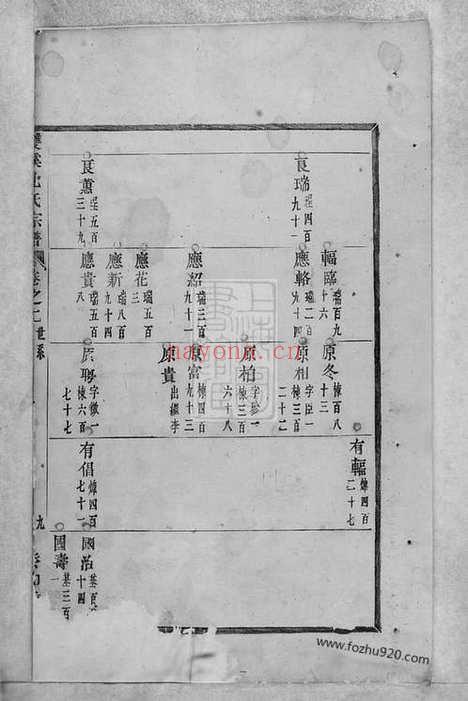 良瑞 珵四百九十一
良蕙 珵五百三十九
輻臨 瑞百九十六
應輅 瑞二百九十四
應紹 瑞三百九十一
應花 瑞五百三
應新 瑞八百九十四
應貴 瑞五百八
原冬 棟百八十三
原相 字臣一 棟三百二十二
原柏 字珍一 棟三百六十八
原富 棟四百九十三
原貴 出繼李
原聘 字徵一 棟六百七十七
有輻 煒四百二十七
有倡 煒四百七十一
國治 基百十四
國壽 基三百一
氏宗譜
卷之二
世系
九
hayonn.cn
www.fozhu920.com